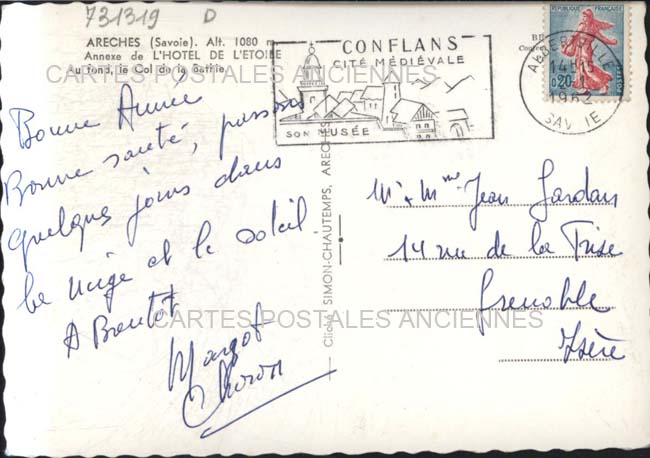 731319 D
ARECHES (Savoie). Alt. 1080 m
Annexe de L'HOTEL DE L'ETOILE
Au fond, le Col de la Bathie
CARTES POSTALES ANCIENNES
Bonne Année
Bonne santé, passons
quelques jours dans
la neige et le soleil
A Bientôt
Margot
CONFLANS
CITÉ MÉDIÉVALE
SON MUSÉE
REPUBLIQUE FRANÇAISE
0,20
POSTES
ALBERTVILLE
14H
1962
SAVOIE
Cliché SIMON-CHAUTEMPS, ARECHES
Mr & Mme Jean Jardan
14 rue de la Frise
Grenoble
Isère
CARTES POSTALES ANCIENNES